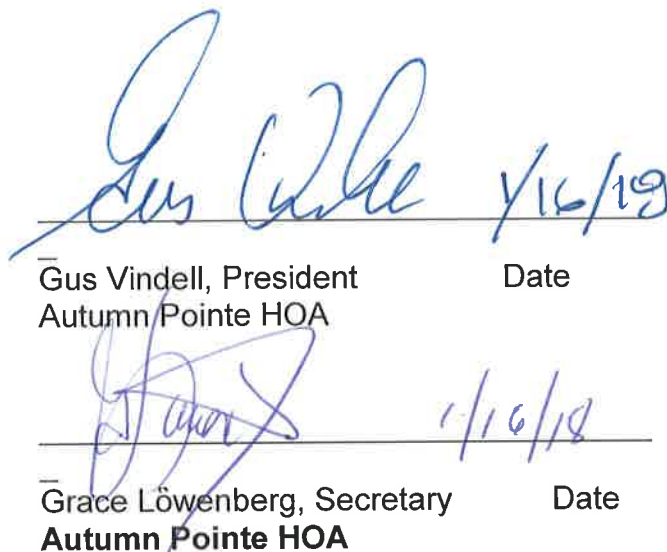 Gus Vindell 1/16/18
Gus Vindell, President Date
Autumn Pointe HOA
1/16/18
Grace Löwenberg, Secretary Date
Autumn Pointe HOA